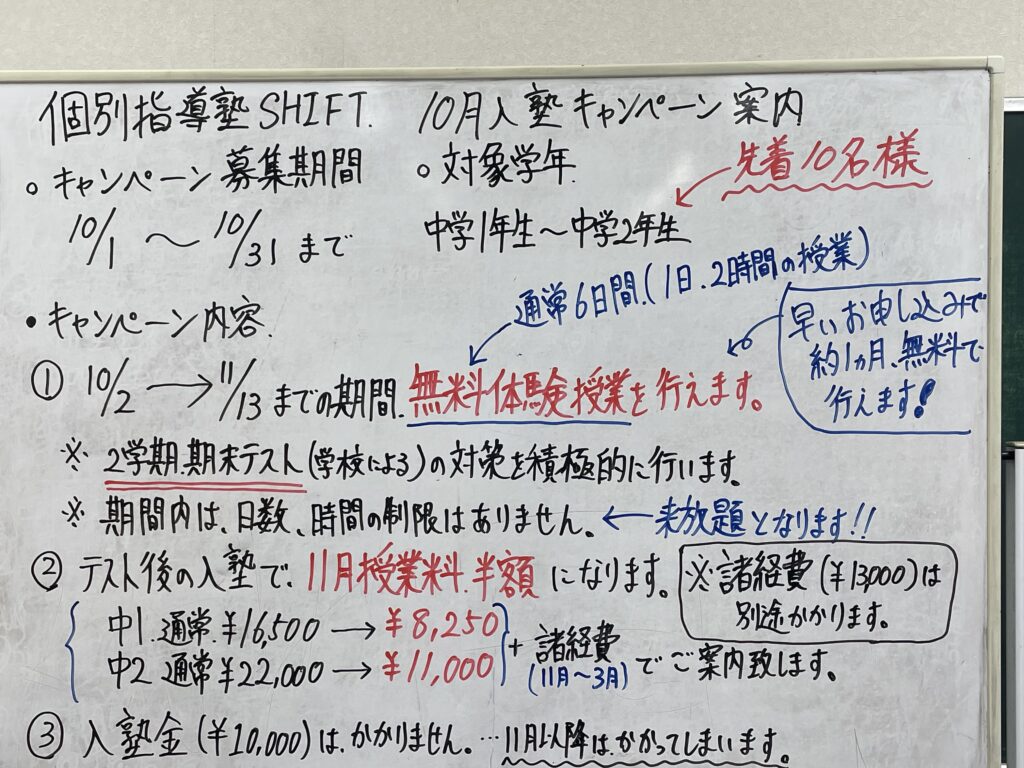 個別指導塾SHIFT. 10月入塾キャンペーン案内
○ キャンペーン募集期間
10/1 〜 10/31 まで
○ 対象学年
先着10名様
中学1年生〜中学2年生
• キャンペーン内容
通常6日間.(1日.2時間の授業)
早いお申し込みで
約1ヵ月、無料で
行えます!
① 10/2 → 11/13 までの期間.無料体験授業を行えます。
※ 2学期.期末テスト(学校による)の対策を積極的に行います。
※ 期間内は、日数、時間の制限はありません。 ← 来放題となります!!
② テスト後の入塾で、11月授業料.半額になります。
※諸経費(¥13,000)は
別途かかります。
中1.通常.¥16,500 → ¥8,250
中2 通常¥22,000 → ¥11,000
+ 諸経費
(11月〜3月)でご案内致します。
③ 入塾金(¥10,000)は.かかりません。…11月以降は.かかってしまいます。